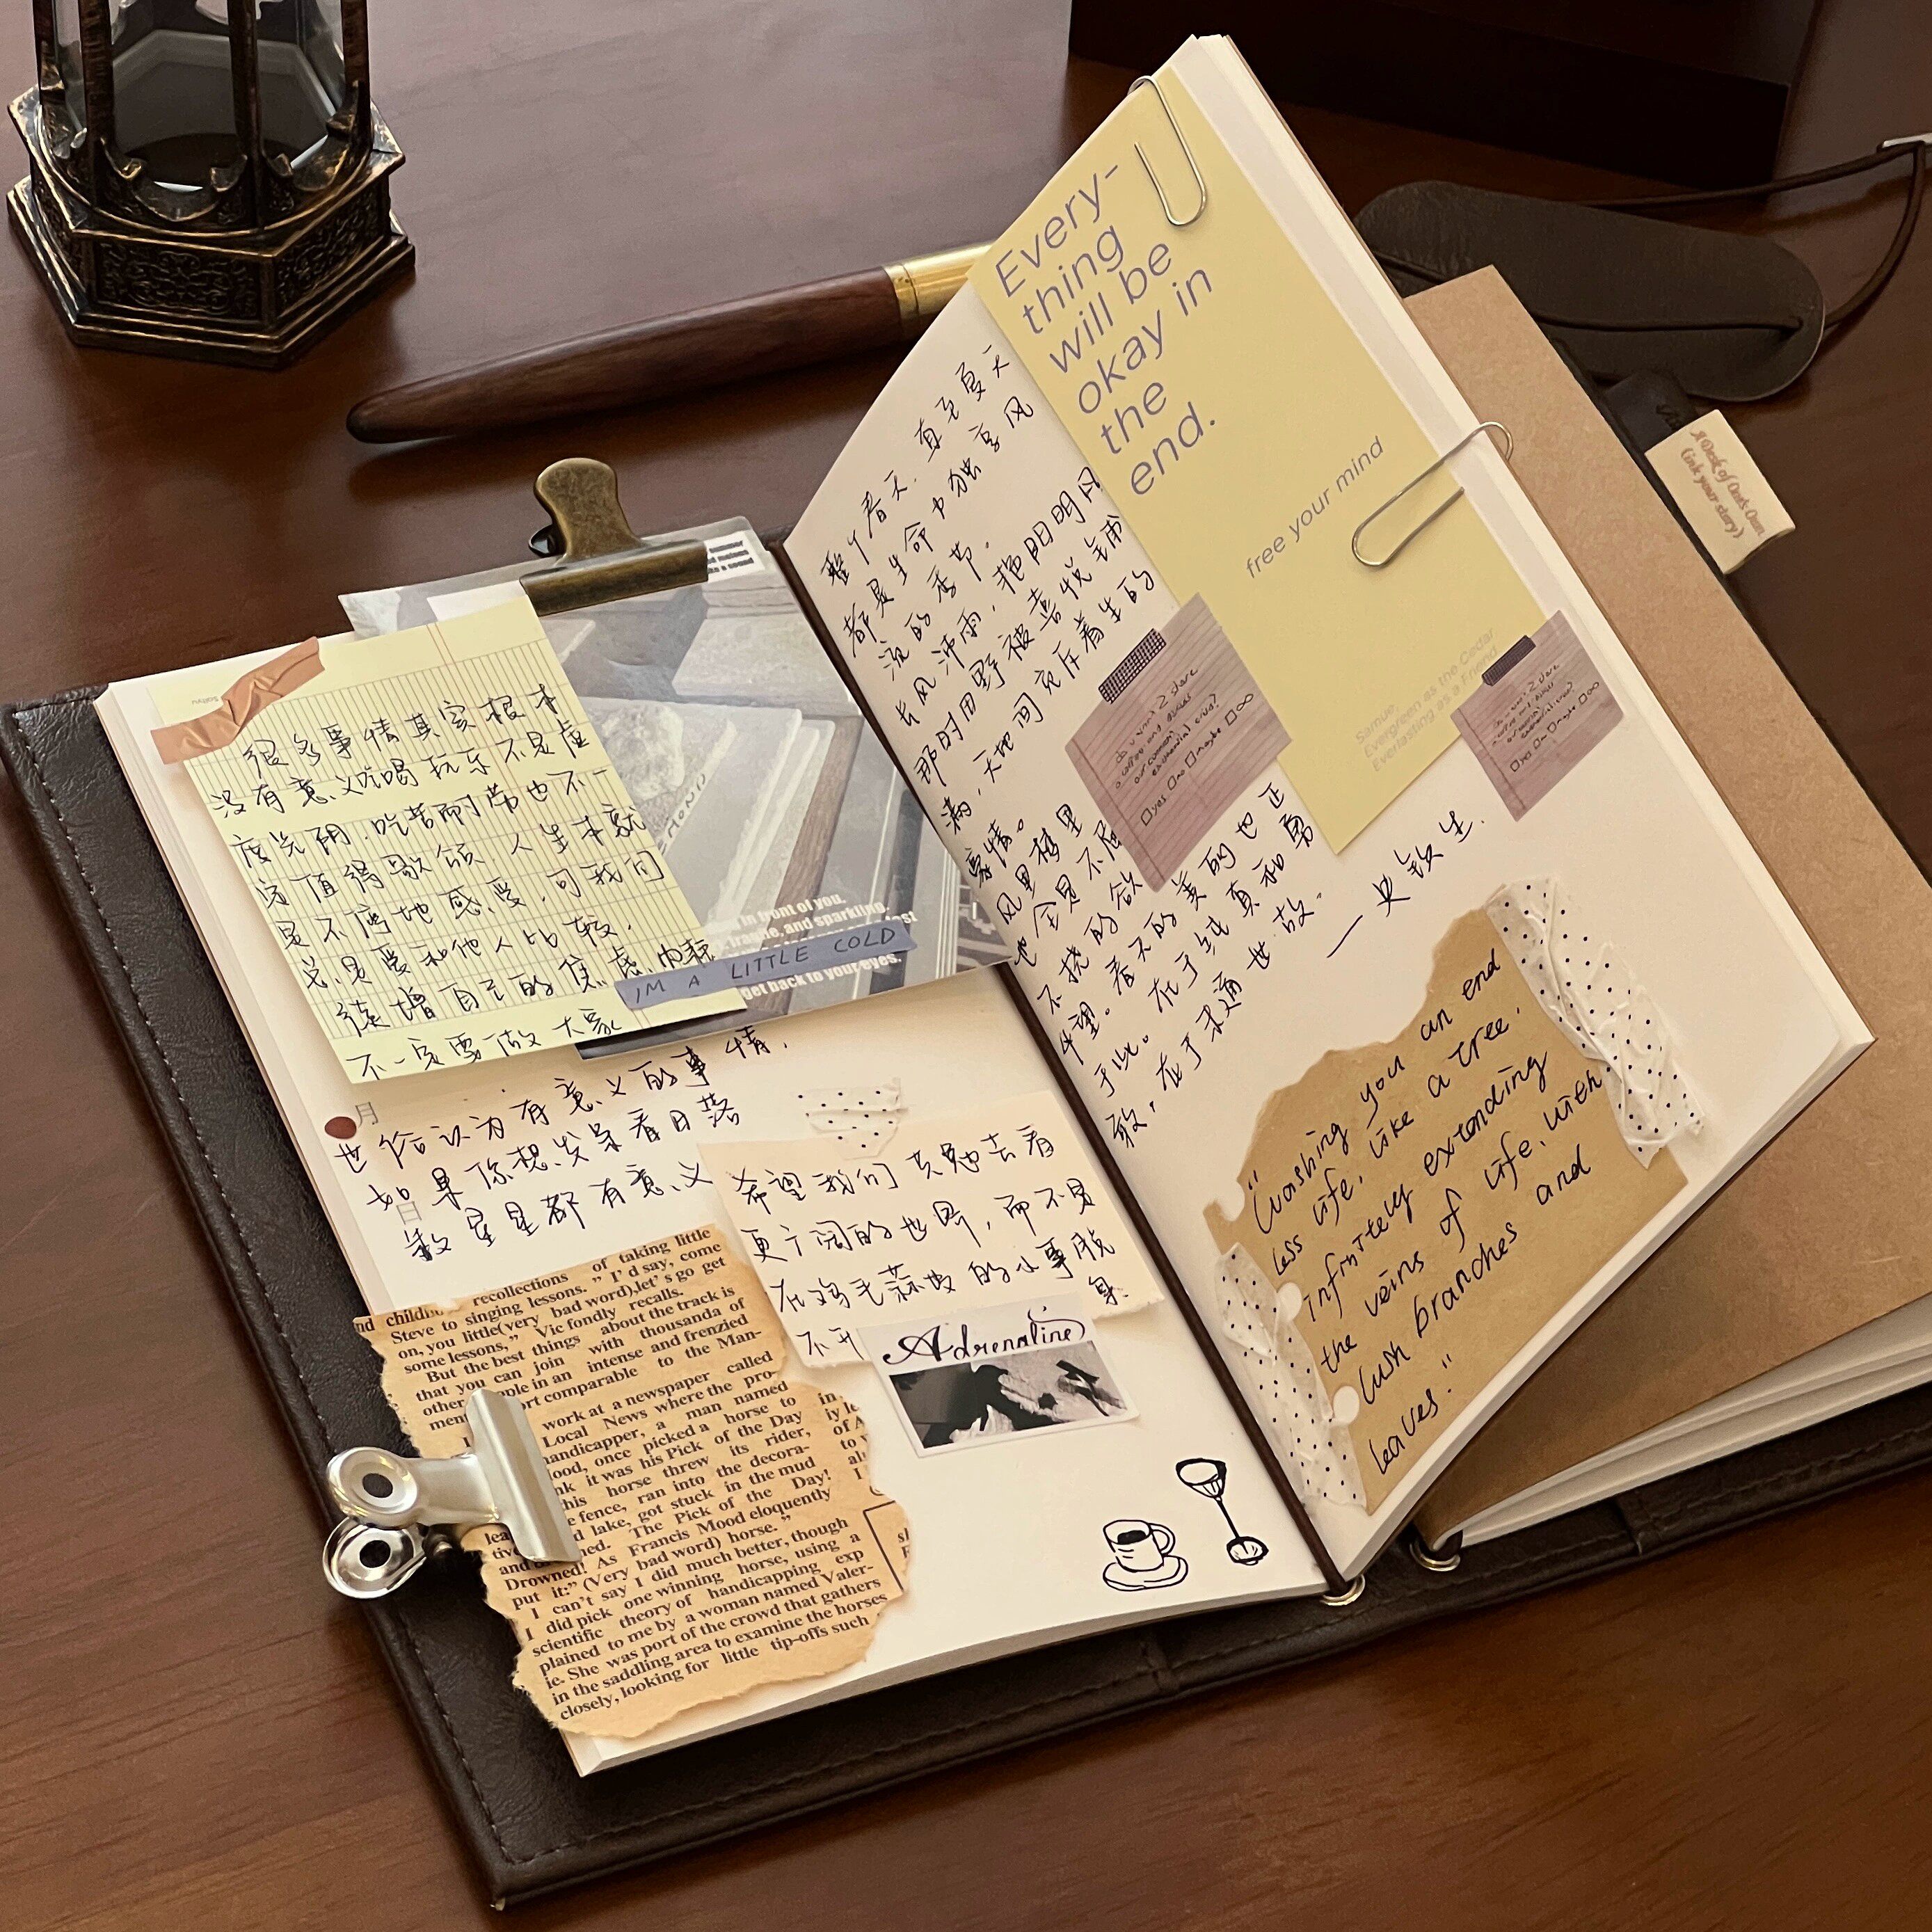 很多事情其实根本
没有意义吃喝玩乐不是虚
度光阴.吃苦耐劳也不一
定值得歌颂.人生本就
是不停地感受.可我们
总是要和他人比较.
徒增自己的焦虑.
不一定要做大家
世俗认为有意义的事情.
如果你想发呆看日落
数星星都有意义
月
日
in front of you.
fragile, and sparkling.
IM A LITTLE COLD
get back to your eyes.
希望我们共勉去看
更广阔的世界,而不是
在鸡毛蒜皮的小事脱
不开
身.
Adrenaline
recollections of taking little
Steve to singing lessons.” I’d say, come
on, you little(very bad word),let’s go get
some lessons,” Vic fondly recalls.
But the best things about the track is
that you can join with thousanda of
other people in an intense and frenzied
comparable to the Man-
work at a newspaper called
Local News where the pro-
handicapper, a man named
once picked a horse to
it was his Pick of the Day
his horse threw its rider,
fence, ran into the decora-
lake, got stuck in the mud
The Pick of the Day!
Drowned! As Francis Mood eloquently
put it:” (Very bad word) horse.”
I can’t say I did much better, though
I did pick one winning horse, using a
scientific theory of handicapping exp
plained to me by a woman named Valer-
ie. She was port of the crowd that gathers
in the saddling area to examine the horses
closely, looking for little tip-offs such
整个春天.直至夏天
都是生命力独享风
流的季节.
长风沛雨,艳阳明月
那时田野被喜悦铺
满,天地间充斥着生的
豪情。
风里梦里
也全是不屈
不挠的欲
望。春天的美的也正
于此。在于纯真和勇
敢,在于未通世故.
一史铁生.
Every-
thing
will be
okay in
the
end.
free your mind
Samue.
Evergreen as the Cedar
Everlasting as a Friend
do u want 2 share
a coffee and discuss
our common
existential crisis?
□yes □no □maybe □∞
□yes □no □maybe □∞
“Washing you an end
less life, like a tree,
infinitely extending
the veins of life, with
lush branches and
leaves.”
A Desk of One's Own
(ink your story)